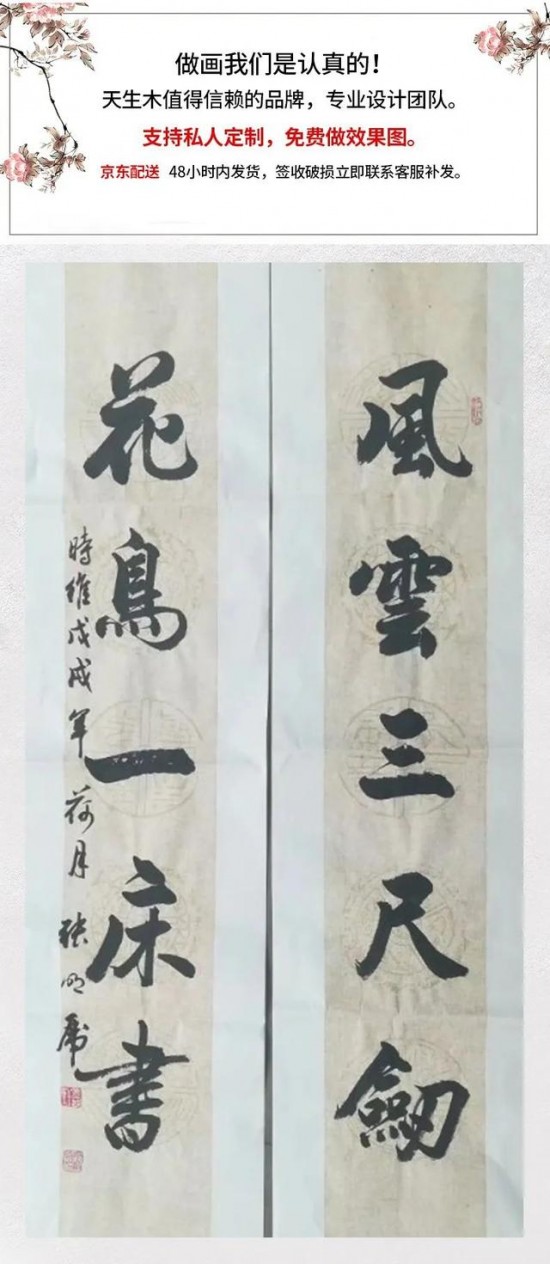 做画我们是认真的！
天生木值得信赖的品牌，专业设计团队。
支持私人定制，免费做效果图。
京东配送 48小时内发货，签收破损立即联系客服补发。
風雲三尺劒
花鳥一床書
時維戊戌年荷月